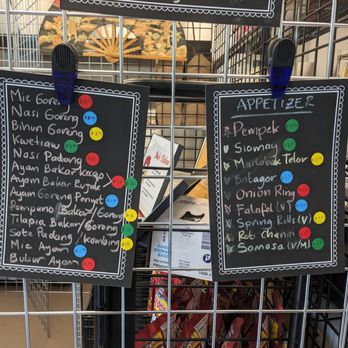 Mie Goreng
Nasi Goreng
Bihun Goreng
Kwetiaw
Nasi Padang
Ayam Bakar Kecap
Ayam Bakar Rujak
Ayam Goreng Penyet
Pompano Bakar/Goreng
Tilapia Bakar/Goreng
Soto Padang Kambing
Mie Ayam
Bubur Ayam
APPETIZER
Pempek
Siomay
Martabak Telor
Batagor
Onion Ring
Falafel (V)
Spring Rolls (V)
Roti Chanai
Samosa (V/M)